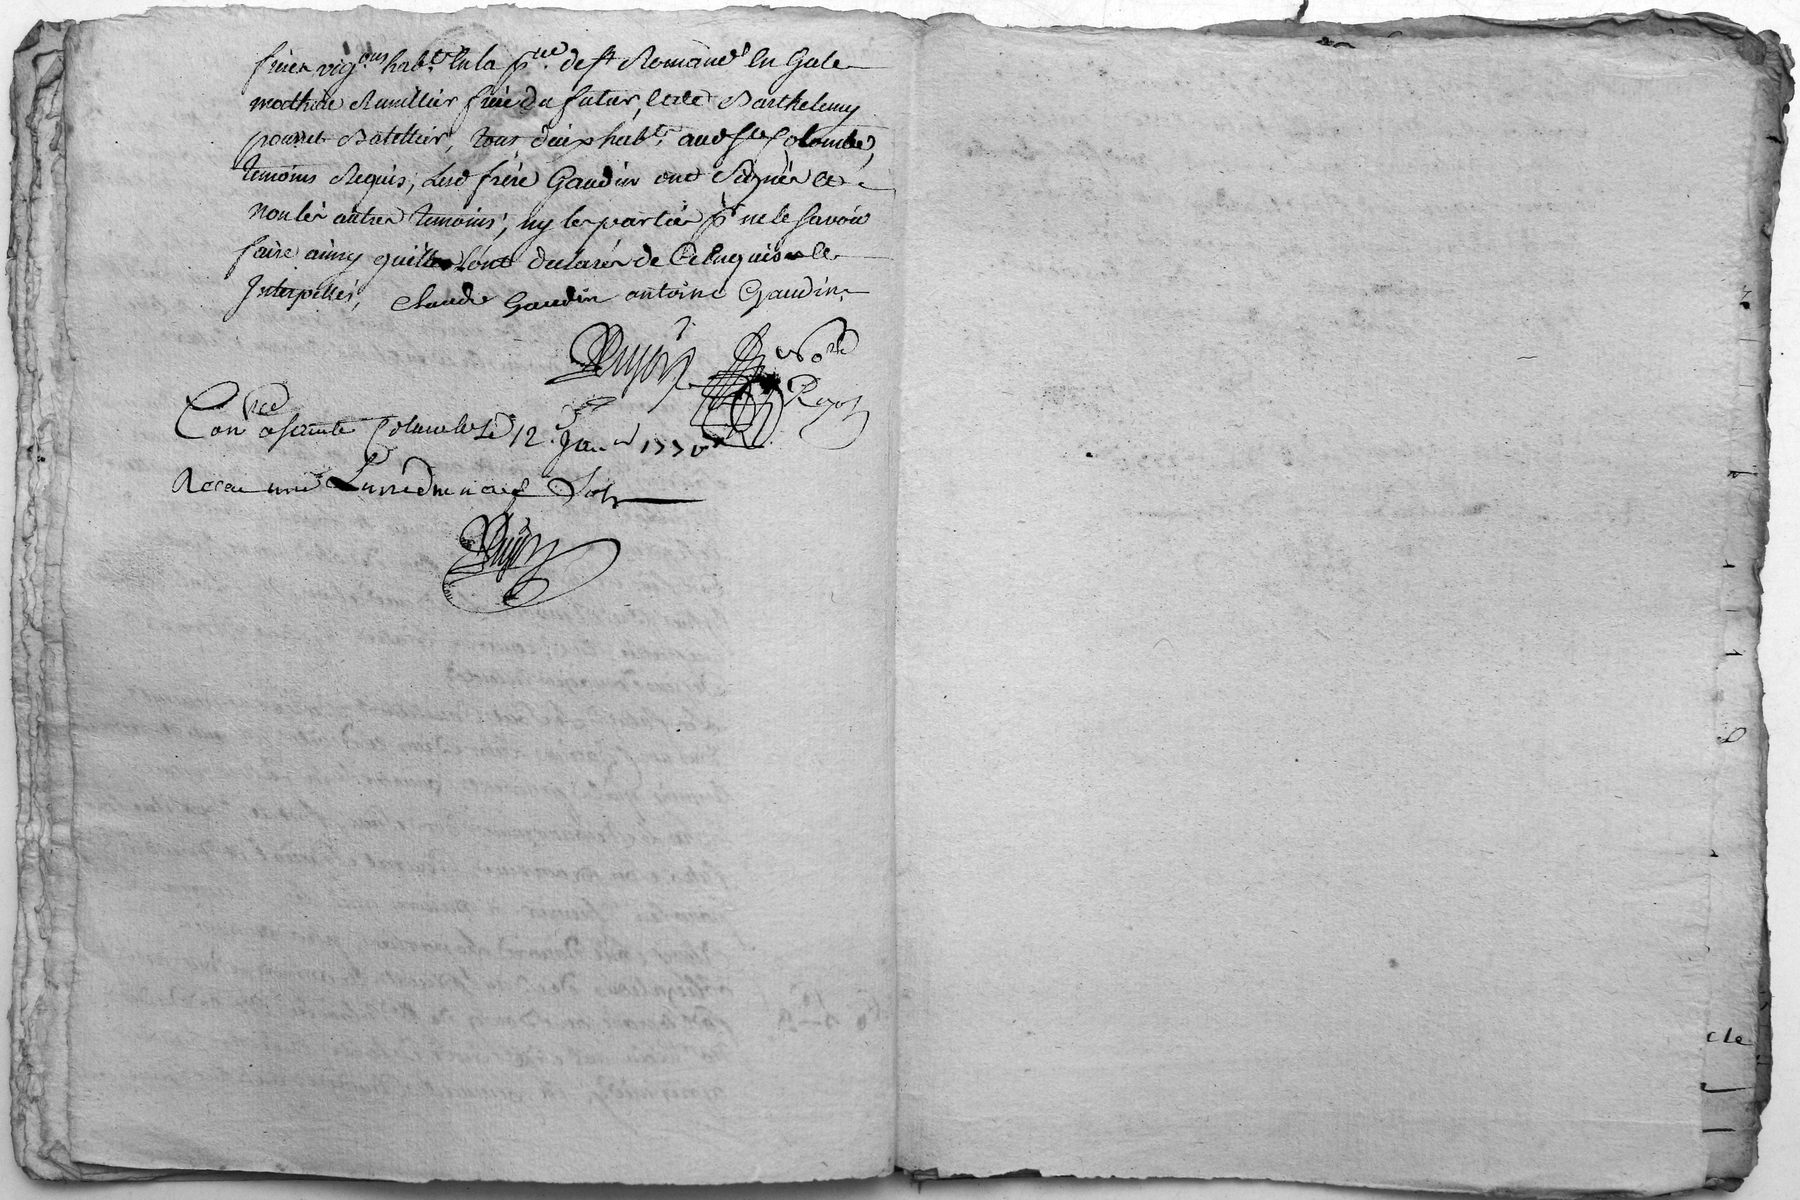 freres vig.ons hab.ts En la p.sse de St Romain En Gale
mathieu Rumillier frere du futur, et de Barthelemy
ponnet Batellier, tous deux hab.ts aud Ste Colombe,
temoins Requis, Lesd frere Gaudin ont Signés et
non les autres temoins, ny les parties p.r ne le Savoir
faire ainsy quils ont declarés de Ce Enquis et
Interpellés, claude Gaudin antoine Gaudin
Dujon No.re Royal
Con.lé a Sainte Colombe Le 12.e Jan.er 177
Recu une Livre dix neuf Sols
Dujon
cle